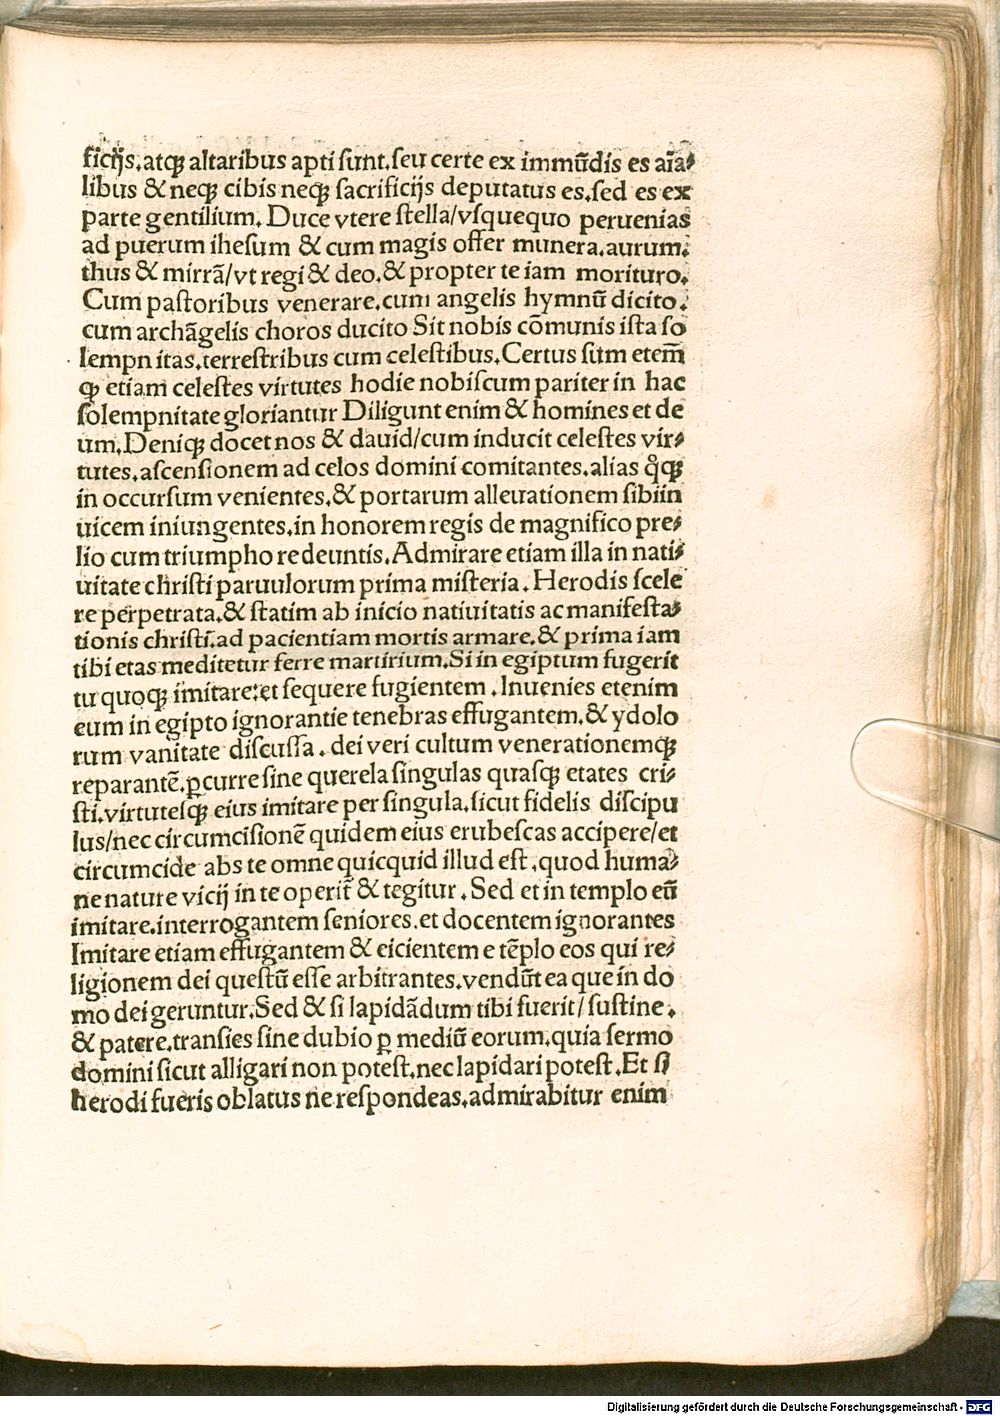 ficijs.atqꝫ altaribus apti sunt.seu certe ex immūdis es aīa⸗
libus & neqꝫ cibis neqꝫ sacrificijs deputatus es.sed es ex
parte gentilium. Duce vtere stella/vsquequo peruenias
ad puerum ihesum & cum magis offer munera.aurum.
thus & mirrā/vt regi & deo.& propter te iam morituro.
Cum pastoribus venerare.cum angelis hymnū dicito.
cum archāgelis choros ducito Sit nobis cōmunis ista so
lempnitas.terrestribus cum celestibus.Certus sum etem̄
qꝫ etiam celestes virtutes hodie nobiscum pariter in hac
solempnitate gloriantur Diligunt enim & homines et de
um.Deniqꝫ docet nos & dauid/cum inducit celestes vir⸗
tutes.ascensionem ad celos domini comitantes.alias qͦqꝫ
in occursum venientes.& portarum alleuationem sibiin
uicem iniungentes.in honorem regis de magnifico pre⸗
lio cum triumpho redeuntis.Admirare etiam illa in nati⸗
uitate christi paruulorum prima misteria. Herodis scele
re perpetrata.& statim ab inicio natiuitatis ac manifesta⸗
tionis christi.ad pacientiam mortis armare.& prima iam
tibi etas meditetur ferre martirium.Si in egiptum fugerit
tu quoqꝫ imitare:et sequere fugientem .Inuenies etenim
eum in egipto ignorantie tenebras effugantem.& ydolo
rum vanitate discussa. dei veri cultum venerationemqꝫ
reparantē.ꝑcurre sine querela singulas quasqꝫ etates cri⸗
sti.virtutesqꝫ eius imitare per singula.sicut fidelis discipu
lus/nec circumcisionē quidem eius erubescas accipere/et
circumcide abs te omne quicquid illud est.quod huma⸗
ne nature vicij in te operit̄ & tegitur. Sed et in templo eū
imitare.interrogantem seniores.et docentem ignorantes
Imitare etiam effugantem & eicientem e tēplo eos qui re⸗
ligionem dei questū esse arbitrantes.vendūt ea que in do
mo dei geruntur.Sed & si lapidādum tibi fuerit/sustine.
& patere.transies sine dubio ꝑ mediū eorum.quia sermo
domini sicut alligari non potest.nec lapidari potest.Et si
herodi fueris oblatus ne respondeas.admirabitur enim
Digitalisierung gefördert durch die Deutsche Forschungsgemeinschaft - DFG